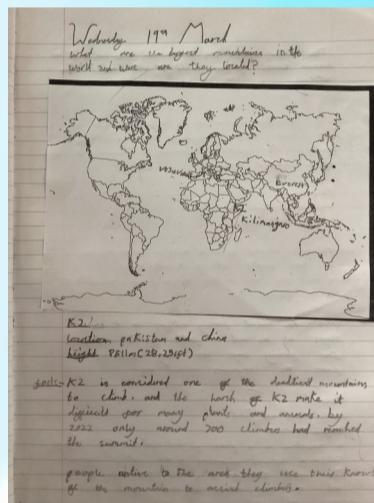 Wednesday 19th March
What are the biggest mountains in the
world and where are they located?
Everest
Kilimanjaro
K2
Location pakistan and china
height 8611m (28,251ft)
facts- K2 is considered one of the deadliest mountains
to climb. and the harsh of K2 make it
difficult for many plants and animals. by
2022 only around 700 climbers had reached
the summit.
people native to the area they use their know
of the mountain to assist climbers.